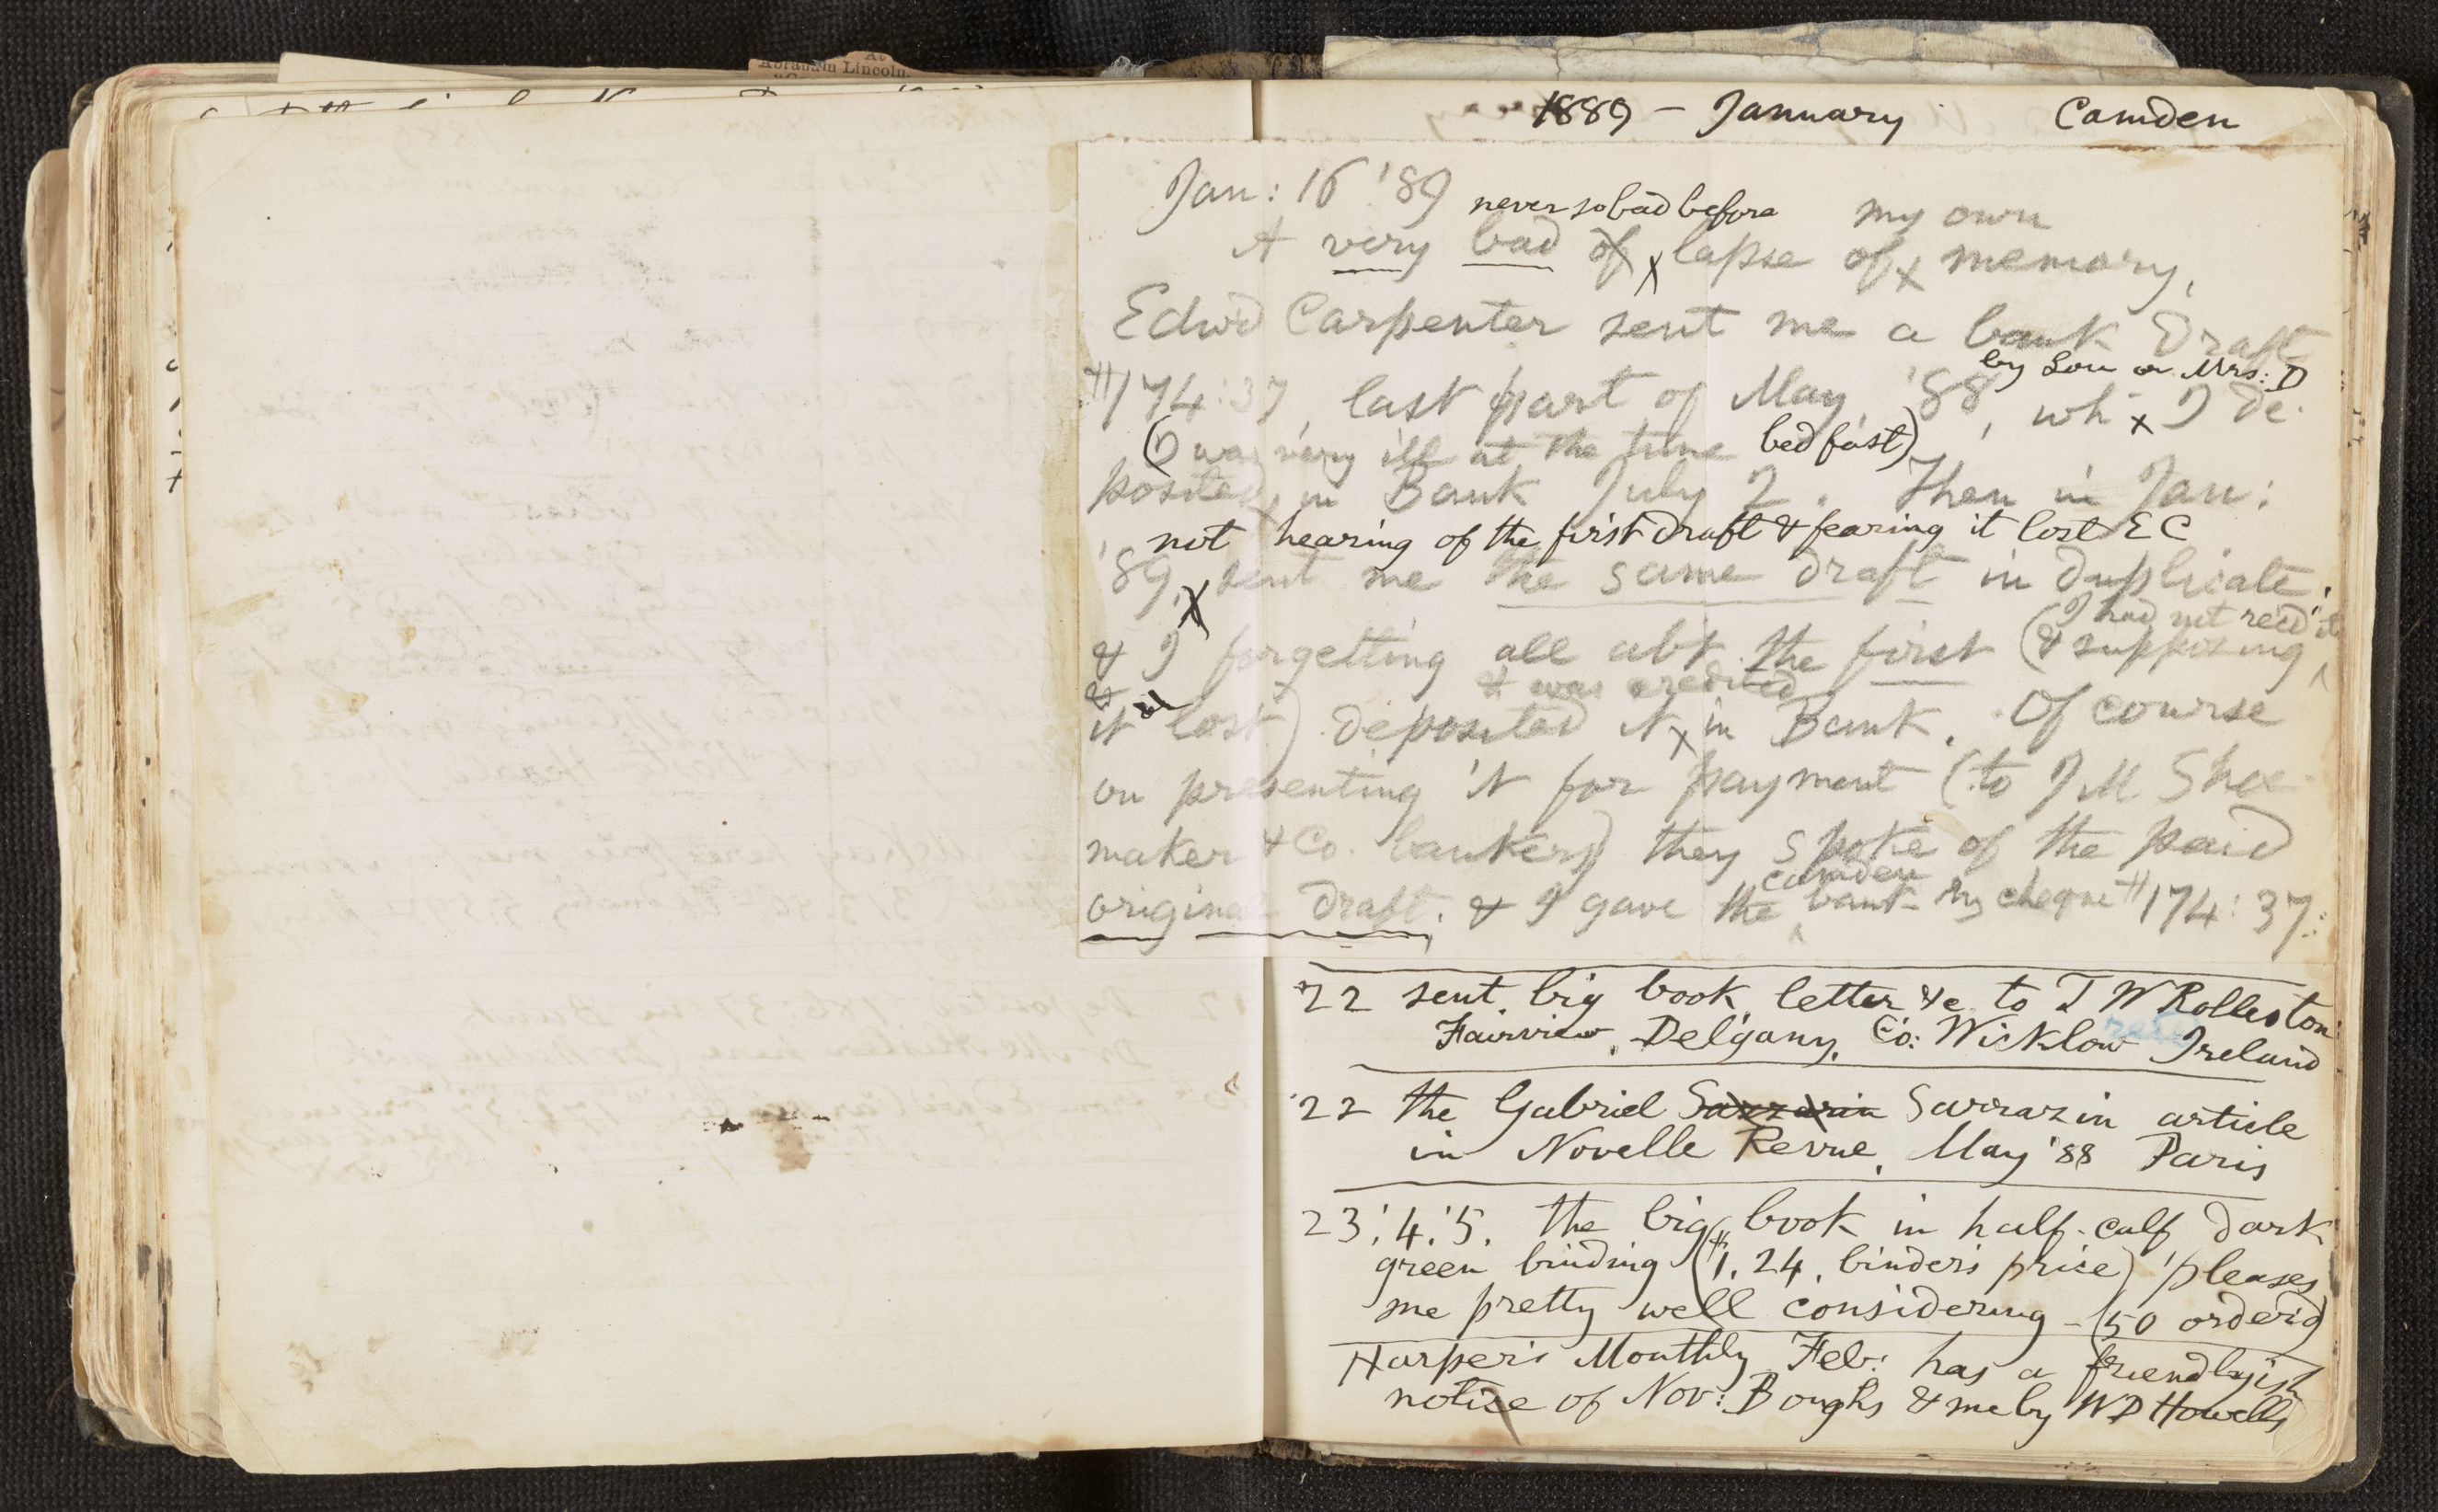 Abraham Lincoln.
1889 – January Camden
Jan: 16 '89 never so bad before my own
A very bad of x lapse of x memory,
Edw'd Carpenter sent me a bank draft
by Lou or Mrs: D
$174:37, last part of May, '88, wh- x I de-
(I was very ill at the time bedfast)
posited, in Bank July 2. Then in Jan:
not hearing of the first draft & fearing it lost E C
'89, x sent me the same draft in duplicate,
I had not rec'd it
& I forgetting all abt the first (& supposing
& was credited
it lost) deposited it x in Bank. Of course
on presenting it for payment (to J M Shoe-
maker & Co. bankers) they spoke of the paid
camden
original draft, & I gave the bank my cheque $174:37:
22 sent big book, letter &c to T W Rolleston
Fairview, Delgany, Co: Wicklow Ireland
22 the Gabriel Sarrazin Sarrazin article
in Novelle Revue, May '88 Paris
23,'4,'5. the big book in half-calf dark
green binding ($1.24, binder's price) pleases
me pretty well considering – (50 order'd)
Harper's Monthly Feb: has a friendlyish
notice of Nov: Boughs & me by W D Howells